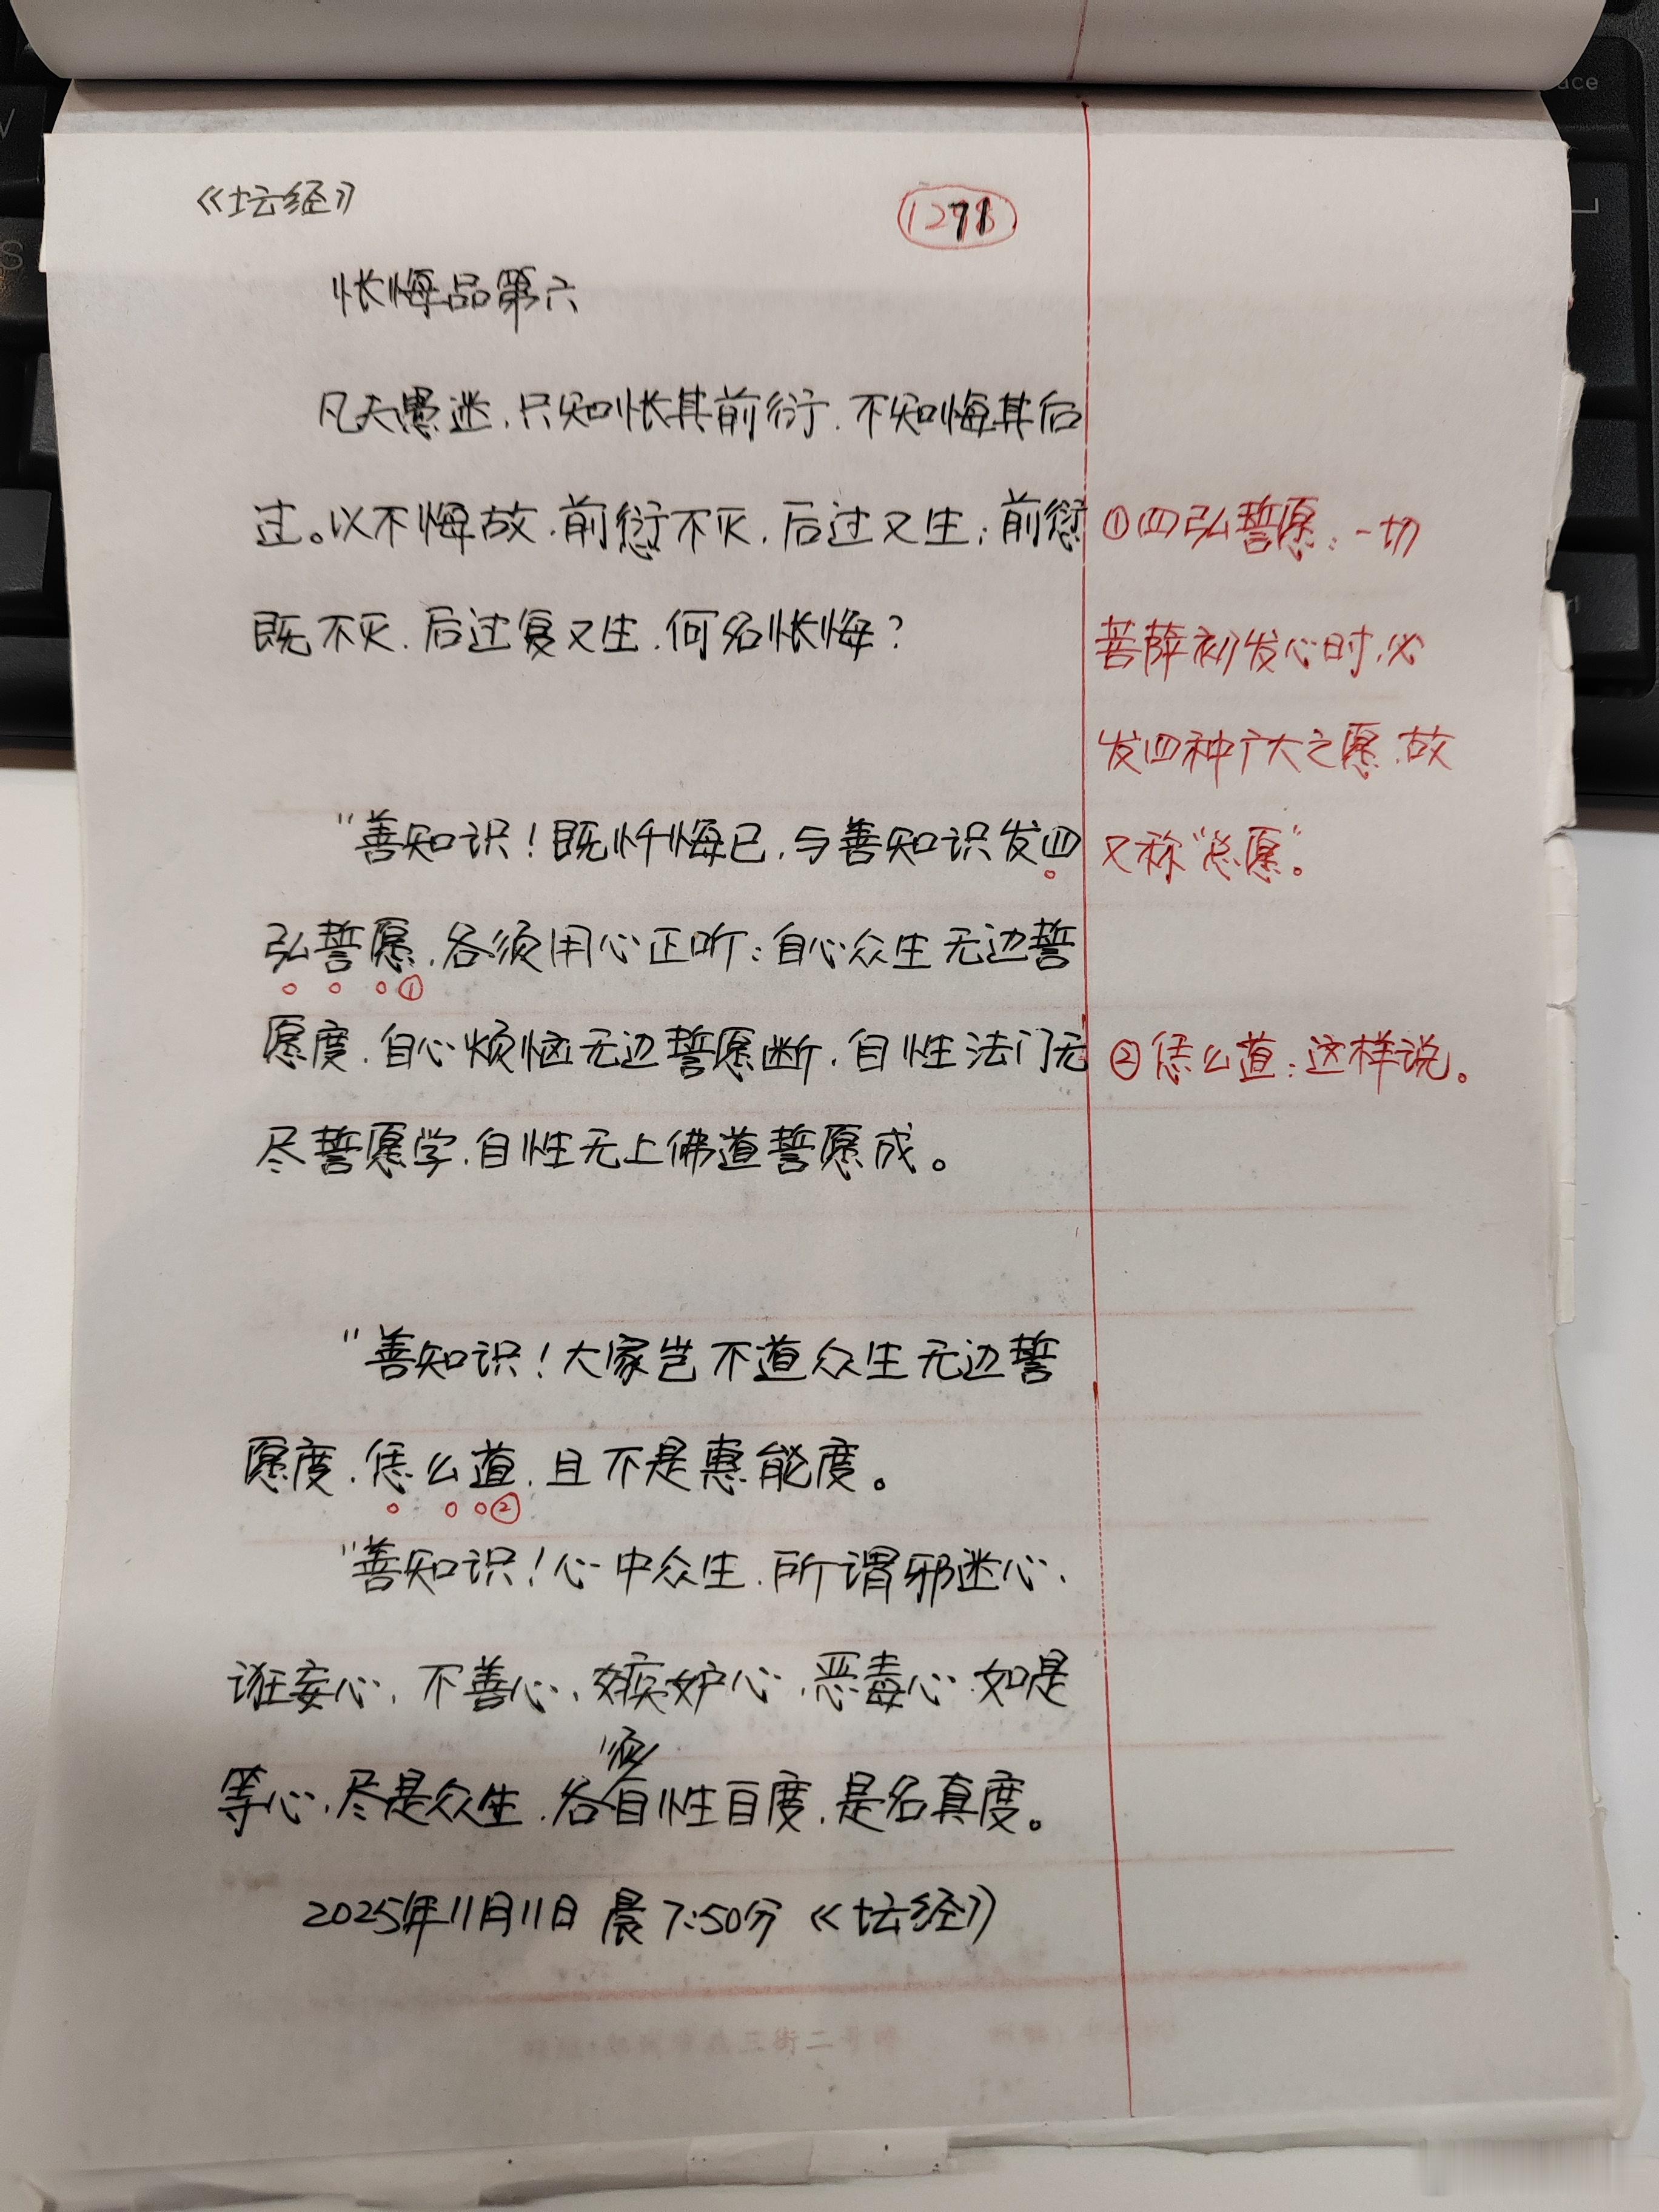 《坛经》
1271
怅悔品第六
凡夫愚迷，只知怅其前衍，不知悔其后
过。以不悔故，前愆不灭，后过又生；前愆
既不灭，后过复又生，何名怅悔？
"善知识！既忏悔已，与善知识发四
弘誓愿，各须用心正听：自心众生无边誓
愿度，自心烦恼无边誓愿断，自性法门无
尽誓愿学，自性无上佛道誓愿成。
"善知识！大家岂不道众生无边誓
愿度，恁么道，且不是惠能度。
"善知识！心中众生，所谓邪迷心、
诳妄心、不善心、嫉妒心、恶毒心，如是
等心，尽是众生，各须自性自度，是名真度。
2025年11月11日 晨7:50分《坛经》
①四弘誓愿：一切
菩萨初发心时，必
发四种广大之愿，故
又称"总愿"。
②恁么道：这样说。